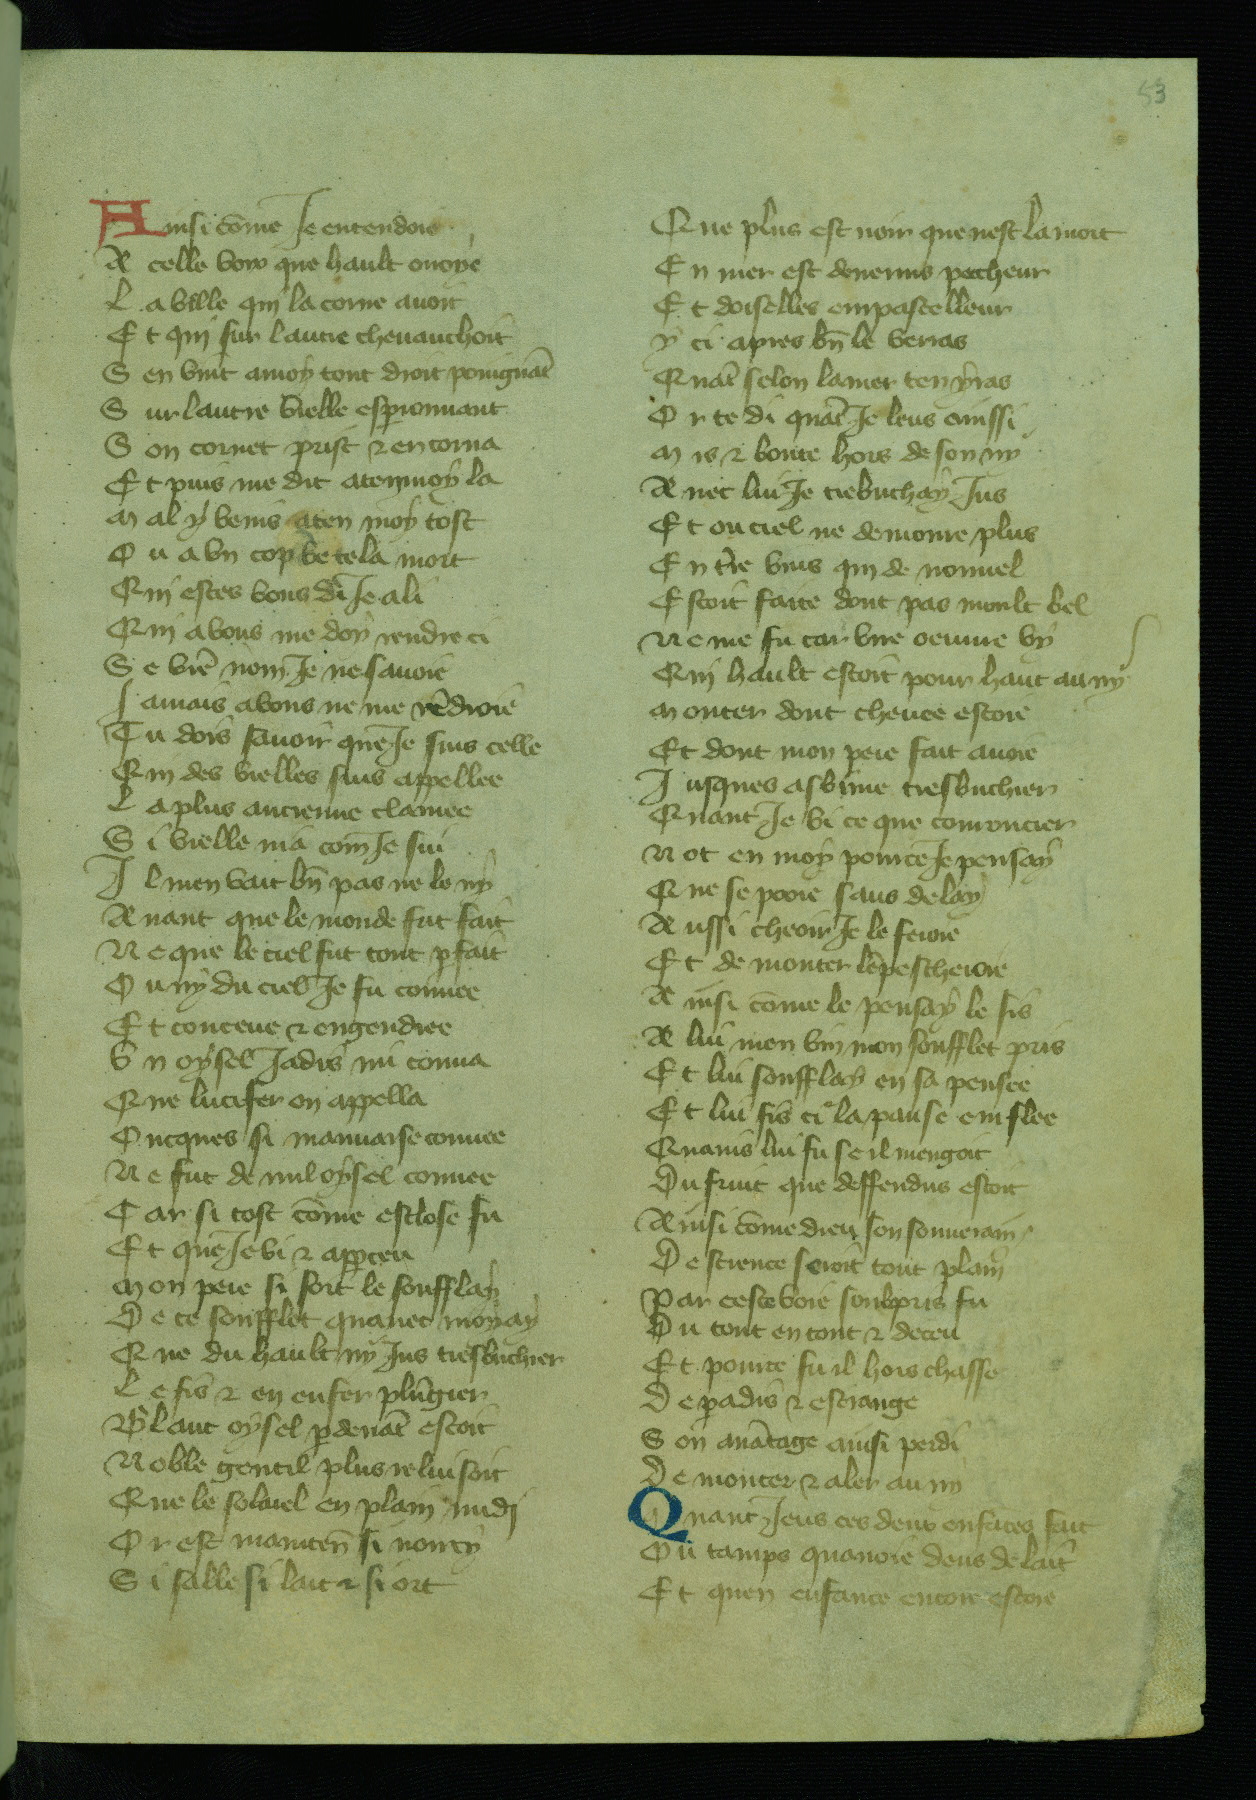 53
Ainsi cõme Je entendoie
A celle voix que hault onoye
L a vielle qui la corne auoit
E t qui sur lautre cheuauchoit
S en vint amoy tout droit poingnãt
S ur lautre vielle esperonnant
S on cornet prist ⁊ en corna
E t puis me dit atenmoy la
M al y venis aten moy tost
O u a vn cop te la mort
Q ui estes vous di Je a li
Q ui a vous me doy rendre ci
S e vrẽ nom Je ne sauoie
J amais a vous ne me rẽdroie
T u dois sauoir que Je suis celle
Q ui des vielles suis appellee
L a plus ancienne clamee
S i vielle ma com̃ Je sui
I l men vait bñ pas ne le ny
A uant que le monde fut fait
N e que le ciel fut tout pfait
O u ny du ciel Je fu couuee
E t conceue ⁊ engendree
V n oysel Jadis mi couua
Q ue lucifer on appella
O ncques si mauuaise couuee
N e fut de nul oysel couuee
C ar si tost cõme esclose fu
E t que Je vi ⁊ apperceu
M on pere si fort le soufflay
D e ce soufflet quauec moy ay
Q ue du hault ny Jus tresbuchier
L e fis ⁊ en enfer plũgier
B lanc oysel p deuãt estoit
N oble gentil plus reluisoit
Q ue le soleul en plain midi
O r est maintẽn si noircy
S i salle si lait ⁊ si ort
Q ue plus est noir que nest la mort
E n mer est deuenus pescheur
E t doiselles empasteleur
Y ci apres bñ le verras
Q uãt selon la mer ten yras
O r te di quãt Je leus ainssi
M is ⁊ boute hors de son ny
A uec lui Je trebuchay Jus
E t ou ciel ne demoure plus
E n tr̃e vins qui de nouuel
E stoit faite dont pas moult bel
N e me fu car vne oeuure vy
Q ui hault estoit pour haut au ny
M onter dont cheute estoie
E t dont mon pere fait auoie
J usques a abime tresbuchier
Q uant Je vi ce que courroucier
N ot en moy pource Je pensay
Q ue se pooie sans delay
A ussi cheoir Je le feroie
E t de monter lẽpescheroie
A insi cõme le pensay le fis
A lui men vin mon soufflet pris
E t lui soufflay en sa pensee
E t lui fis ci la panse enflee
Q uauis lui fu se il mengoit
D u fruit que deffendus estoit
A insi cõme dieu son souuerain
D e science seroit tout plain
P ar ceste voie soubpris fu
D u tout en tout ⁊ deceu
E t pource fu il hors chasse
D e padis ⁊ estrange
S on auãtage ainsi perdi
D e monter ⁊ aler au ny
Quant Jeus ces deux enfãces fait
O u tamps quauoie dens de lait
E t quen enfance encore estoie